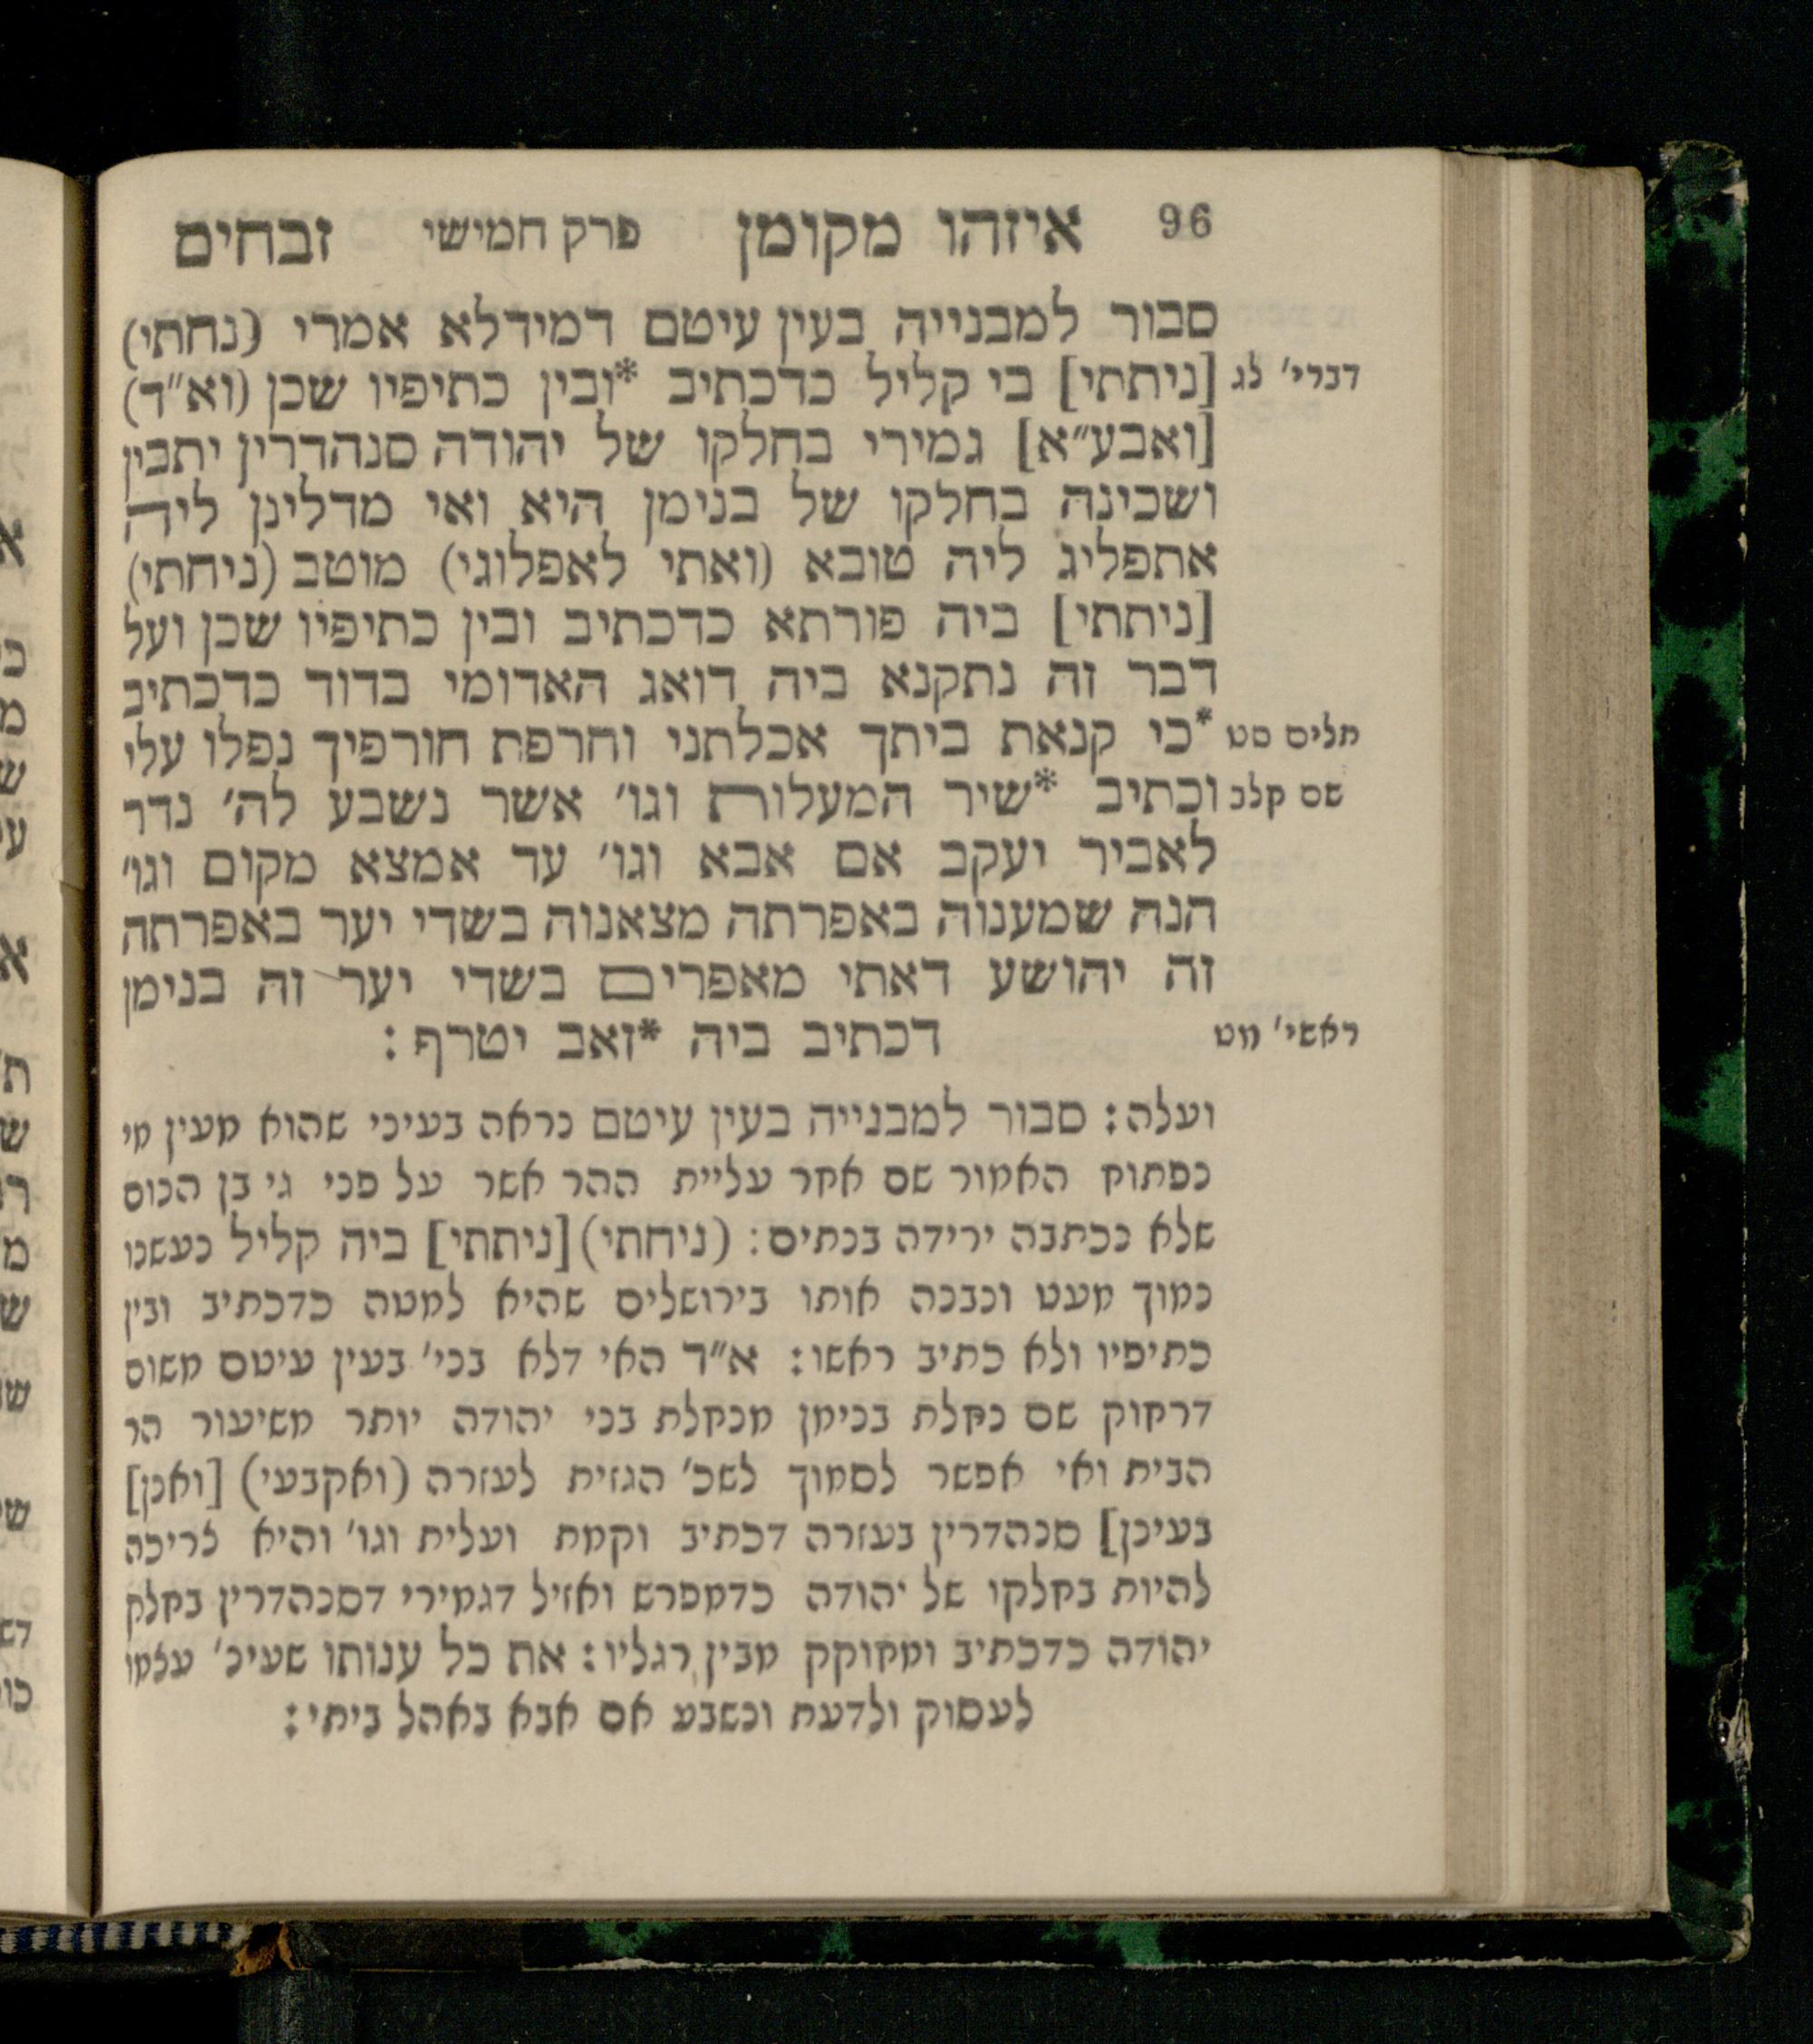 96 איזהו מקומן פרק חמישי זבחים
סבור למבנייה בעין עיטם דמידלא אמרי (נחתי)
דברי׳ לג [ניתתי] בי קליל כדכתיב *ובין כתיפיו שכן (וא״ד)
[ואבע״א] גמירי בחלקו של יהודה סנהדרין יתבין
ושכינה בחלקו של בנימן היא ואי מדלינן ליה
אתפליג ליה טובא (ואתי לאפלוגי) מוטב (ניחתי)
[ניתתי] ביה פורתא כדכתיב ובין כתיפיו שכן ועל
דבר זה נתקנא ביה דואג האדומי בדוד כדכתיב
תלים סט *כי קנאת ביתך אכלתני וחרפת חורפיך נפלו עלי
שם קלב וכתיב *שיר המעלות וגו׳ אשר נשבע לה׳ נדר
לאביר יעקב אם אבא וגו׳ עד אמצא מקום וגו׳
הנה שמענוה באפרתה מצאנוה בשדי יער באפרתה
זה יהושע דאתי מאפרים בשדי יער זה בנימן
ראשי׳ מט דכתיב ביה *זאב יטרף :
ועלה: סבור למבנייה בעין עיטם נראה בעיני שהוא מעין מי
נפתוח האמור שם אחר עליית ההר אשר על פני גי בן הנום
שלא נכתבה ירידה בנתים: (ניחתי) [ניתתי] ביה קליל נעשנו
נמוך מעט ונבנה אותו בירושלים שהיא למטה כדכתיב ובין
כתיפיו ולא כתיב ראשו: א״ד האי דלא בני׳ בעין עיטם משום
דרחוק שם נחלת בנימן מנחלת בני יהודה יותר משיעור הר
הבית ואי אפשר לסמוך לשכ׳ הגזית לעזרה (ואקבעי) [ואנן]
בעינן] סנהדרין בעזרה דכתיב וקמת ועלית וגו׳ והיא צריכה
להיות בחלקו של יהודה כדמפרש ואזיל דגמירי דסנהדרין בחלק
יהודה כדכתיב ומחוקק מבין רגליו: את כל ענותו שעינ׳ עצמו
לעסוק ולדעת ונשבע אם אבא באהל ביתי: